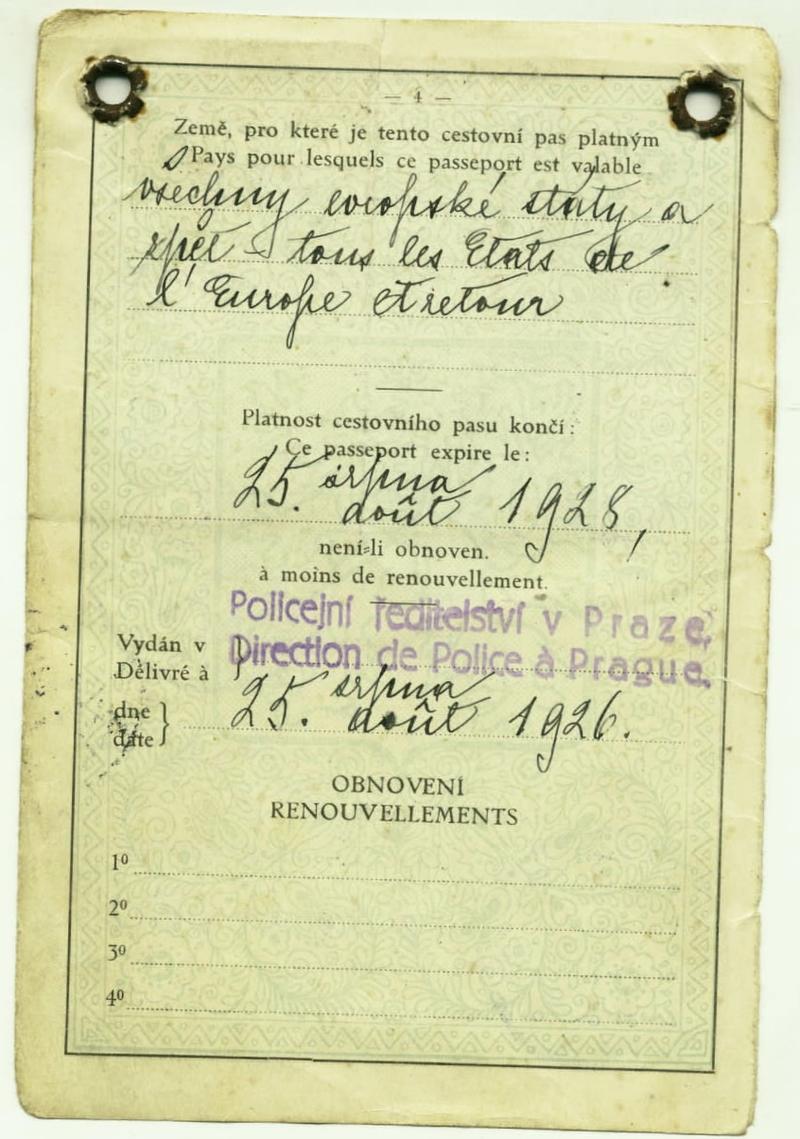 — 4 —
Země, pro které je tento cestovní pas platným
Pays pour lesquels ce passeport est valable
všechny evropské státy a
zpět – tous les Etats de
l'Europe et retour
Platnost cestovního pasu končí:
Ce passeport expire le:
25. srpna
août 1928,
není-li obnoven.
à moins de renouvellement.
Policejní ředitelství v Praze,
Vydán v
Direction de Police à Prague,
Délivré à
25. srpna
août 1926.
dne
date
OBNOVENÍ
RENOUVELLEMENTS
1º
2º
3º
4º